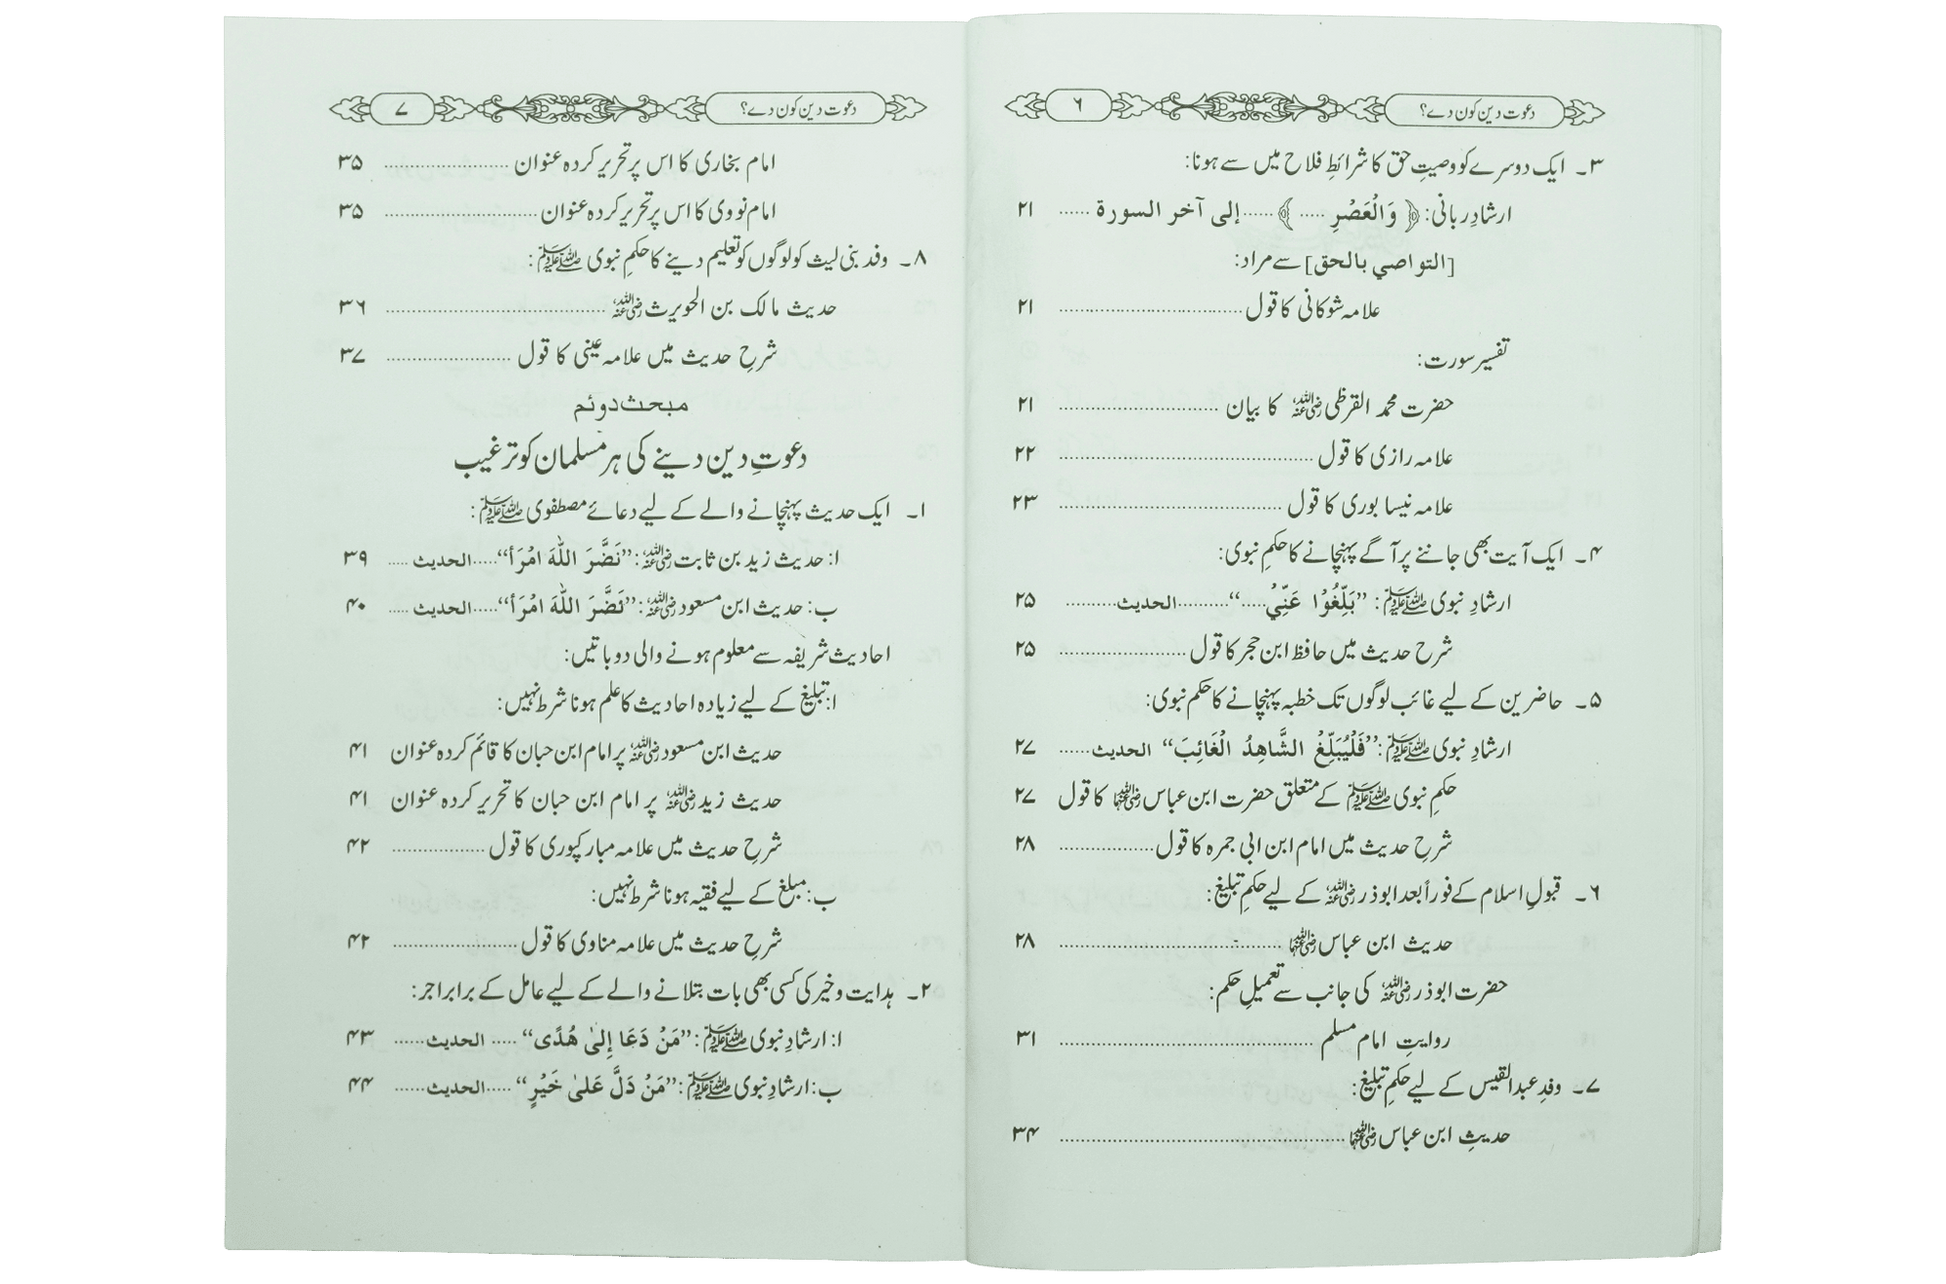 دعوت دین کون دے؟ ۶
۳۔ ایک دوسرے کو وصیتِ حق کا شرائطِ فلاح میں سے ہونا:
ارشادِ ربانی: ﴿ وَالْعَصْرِ ..... ﴾......إلى آخر السورة ...... ۲۱
[التواصي بالحق] سے مراد:
علامہ شوکانی کا قول ...... ۲۱
تفسیر سورت:
حضرت محمد القرظی رضی اللہ عنہ کا بیان ...... ۲۱
علامہ رازی کا قول ...... ۲۲
علامہ نیسابوری کا قول ...... ۲۳
۴۔ ایک آیت بھی جاننے پر آگے پہنچانے کا حکمِ نبوی:
ارشادِ نبوی ﷺ: ”بَلِّغُوْا عَنِّيْ.....“..........الحديث.......... ۲۵
شرح حدیث میں حافظ ابن حجر کا قول ...... ۲۵
۵۔ حاضرین کے لیے غائب لوگوں تک خطبہ پہنچانے کا حکم نبوی:
ارشادِ نبوی ﷺ: ”فَلْيُبَلِّغْ الشَّاهِدُ الْغَائِبَ“ الحديث...... ۲۷
حکمِ نبوی ﷺ کے متعلق حضرت ابن عباس رضی اللہ عنہما کا قول ۲۷
شرحِ حدیث میں امام ابن ابی جمرہ کا قول ...... ۲۸
۶۔ قبولِ اسلام کے فوراً بعد ابوذر رضی اللہ عنہ کے لیے حکمِ تبلیغ:
حدیث ابن عباس رضی اللہ عنہما ...... ۲۸
حضرت ابوذر رضی اللہ عنہ کی جانب سے تعمیلِ حکم:
روایتِ امام مسلم ...... ۳۱
۷۔ وفدِ عبدالقیس کے لیے حکمِ تبلیغ:
حدیثِ ابن عباس رضی اللہ عنہما ...... ۳۴
دعوت دین کون دے؟ ۷
امام بخاری کا اس پر تحریر کردہ عنوان ...... ۳۵
امام نووی کا اس پر تحریر کردہ عنوان ...... ۳۵
۸۔ وفد بنی لیث کو لوگوں کو تعلیم دینے کا حکمِ نبوی ﷺ:
حدیث مالک بن الحویرث رضی اللہ عنہ ...... ۳۶
شرحِ حدیث میں علامہ عینی کا قول ...... ۳۷
مبحث دوئم
دعوتِ دین دینے کی ہر مسلمان کو ترغیب
۱۔ ایک حدیث پہنچانے والے کے لیے دعائے مصطفوی ﷺ:
ا: حدیث زید بن ثابت رضی اللہ عنہ: ”نَضَّرَ اللّٰهَ امْرَأ“.....الحديث ..... ۳۹
ب: حدیث ابن مسعود رضی اللہ عنہ: ”نَضَّرَ اللّٰهَ امْرَأ“.....الحديث ..... ۴۰
احادیث شریفہ سے معلوم ہونے والی دو باتیں:
ا: تبلیغ کے لیے زیادہ احادیث کا علم ہونا شرط نہیں:
حدیث ابن مسعود رضی اللہ عنہ پر امام ابن حبان کا قائم کردہ عنوان ۴۱
حدیث زید رضی اللہ عنہ پر امام ابن حبان کا تحریر کردہ عنوان ۴۱
شرحِ حدیث میں علامہ مبارکپوری کا قول ...... ۴۲
ب: مبلغ کے لیے فقیہ ہونا شرط نہیں:
شرحِ حدیث میں علامہ مناوی کا قول ...... ۴۲
۲۔ ہدایت و خیر کی کسی بھی بات بتلانے والے کے لیے عامل کے برابر اجر:
ا: ارشادِ نبوی ﷺ: ”مَنْ دَعَا إِلىٰ هُدًى“ ..... الحديث...... ۴۳
ب: ارشادِ نبوی ﷺ: ”مَنْ دَلَّ عَلىٰ خَيْرٍ“ .....الحديث...... ۴۴